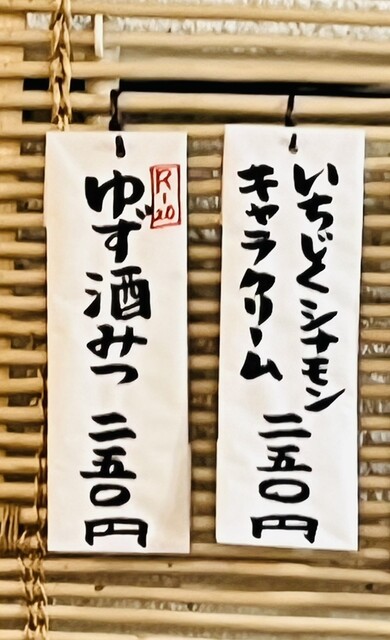 いちじくシナモン
キャラクリーム
二五〇円
R-20
ゆず酒みつ
二五〇円